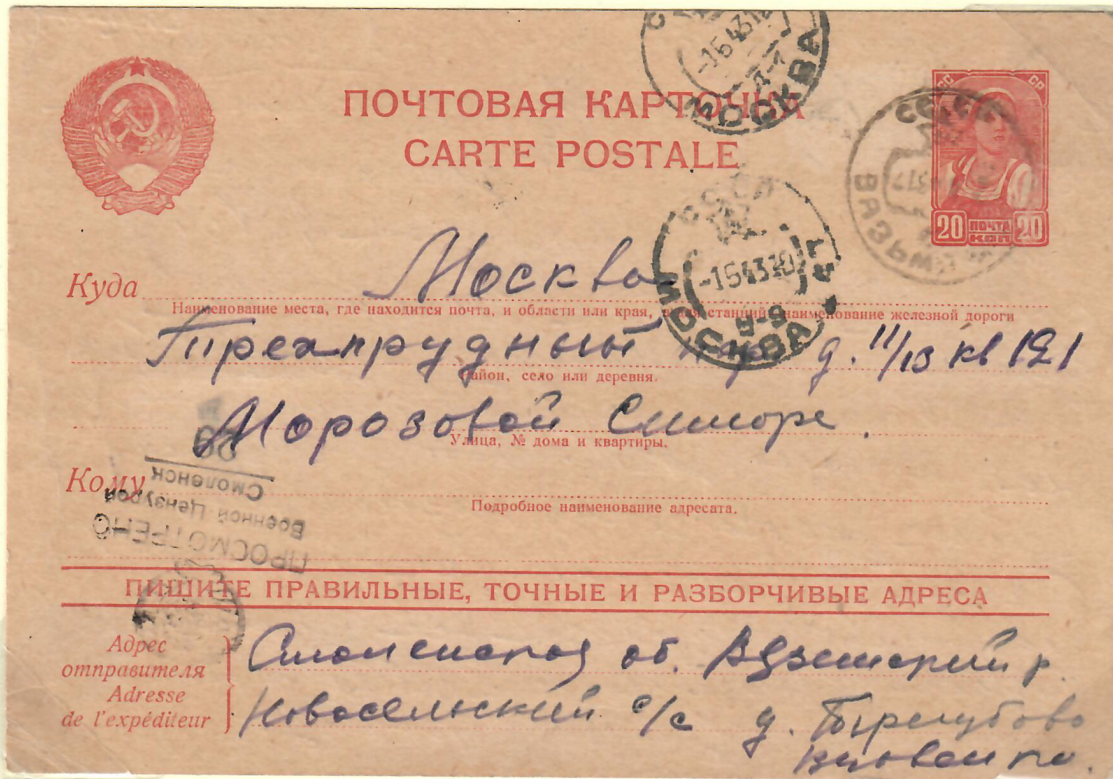 ПОЧТОВАЯ КАРТОЧКА
CARTE POSTALE
СССР
-1643
МОСКВА
СС СР
20 ПОЧТА КОП 20
ВЯЗЬМА
СССР
-164310
МОСКВА
Куда Москва
Наименование места, где находится почта, и области или края, а для станций наименование железной дороги
Трехпрудный пер д. 11/13 кв 121
Район, село или деревня.
Морозовой
Улица, № дома и квартиры.
Кому
Подробное наименование адресата.
ПРОСМОТРЕНО
Военной Цензурой
Смоленск
ПИШИТЕ ПРАВИЛЬНЫЕ, ТОЧНЫЕ И РАЗБОРЧИВЫЕ АДРЕСА
Адрес
отправителя
Adresse
de l'expéditeur
Смоленская об. р.
Новосельский с/с д.